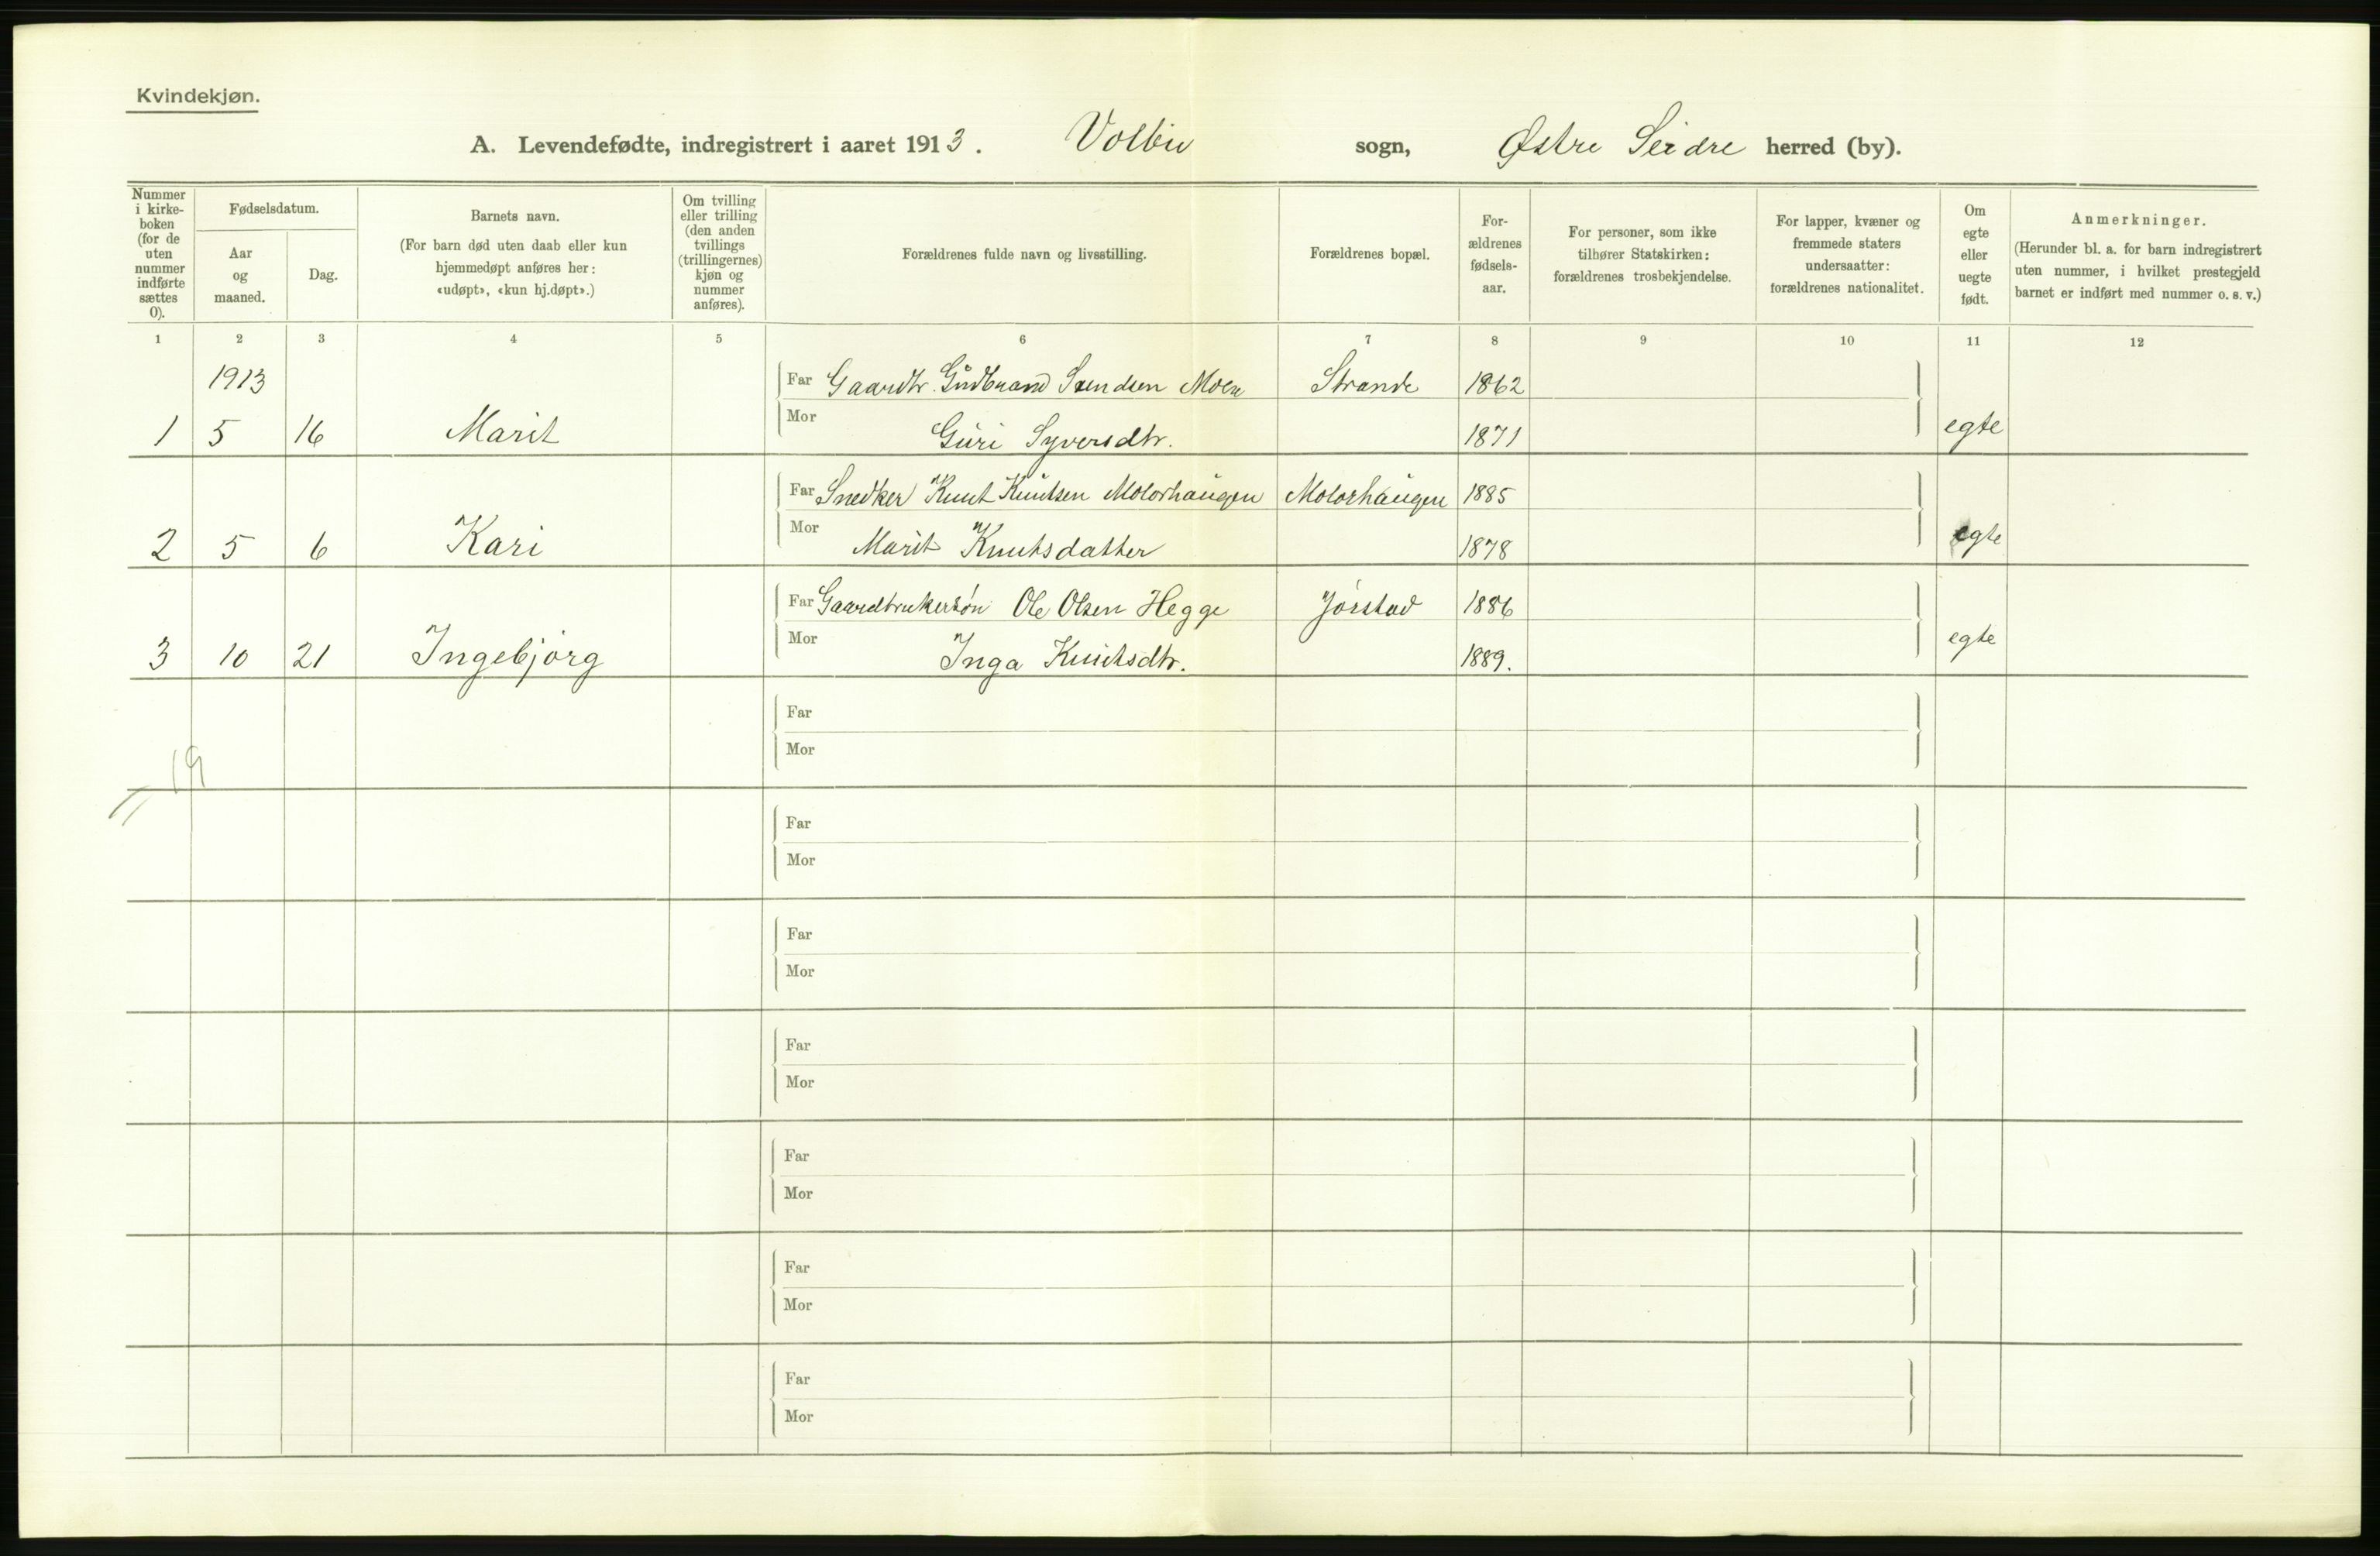 Kvindekjøn.
A. Levendefødte, indregistrert i aaret 1913. Volbu sogn, Østre Sledre herred (by).
Nummer i kirke-boken (for de uten nummer indførte sættes 0).
Fødselsdatum.
Aar og maaned.
Dag.
Barnets navn.
(For barn død uten daab eller kun hjemmedøpt anføres her: «udøpt», «kun hj.døpt».)
Om tvilling eller trilling (den anden tvillings (trillingernes) kjøn og nummer anføres).
Forældrenes fulde navn og livsstilling.
Forældrenes bopæl.
For-ældrenes fødsels-aar.
For personer, som ikke tilhører Statskirken: forældrenes trosbekjendelse.
For lapper, kvæner og fremmede staters undersaatter: forældrenes nationalitet.
Om egte eller uegte født.
Anmerkninger.
(Herunder bl. a. for barn indregistrert uten nummer, i hvilket prestegjeld barnet er indført med nummer o. s. v.)
1 2 3 4 5 6 7 8 9 10 11 12
1913 Far Gaardbr. Gudbrand Svendsen Moen Strande 1862
1 5 16 Marit Mor Guri Syversdtr. 1871 egte
Far Snedker Knut Knutsen Molorhaugen Molorhaugen 1885
2 5 6 Kari Mor Marit Knutsdatter 1878 egte
Far Gaardbrukersøn Ole Olsen Hegge Jørstad 1886
3 10 21 Ingebjørg Mor Inga Knutsdtr. 1889. egte
Far
Mor
19
Far
Mor
Far
Mor
Far
Mor
Far
Mor
Far
Mor
Far
Mor